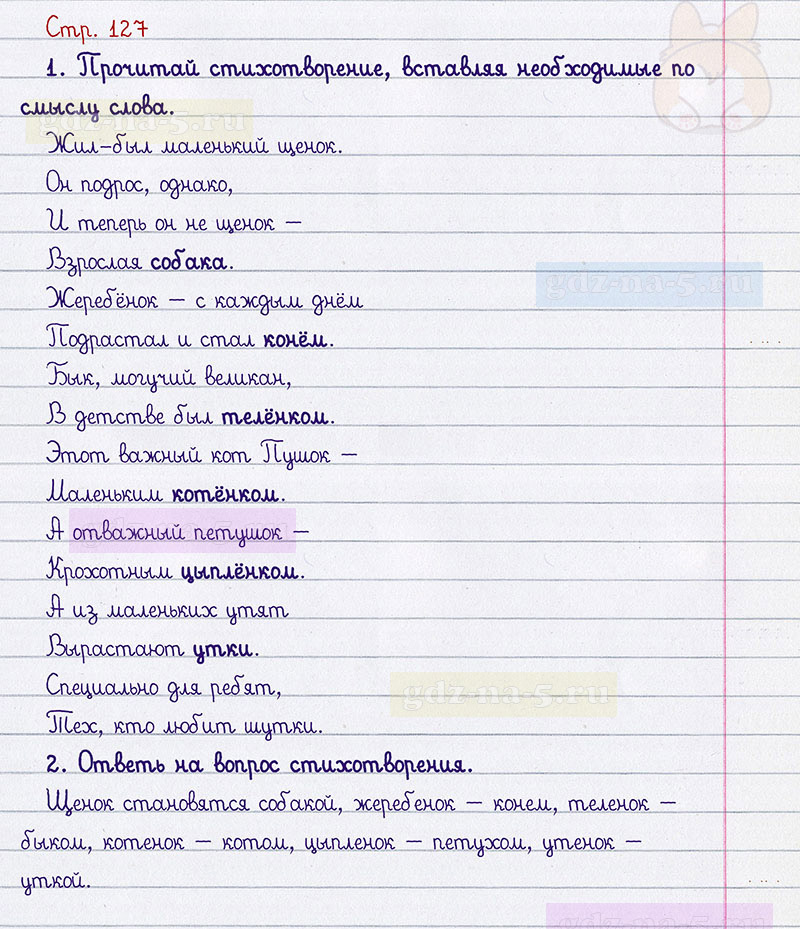 Стр. 127
1. Прочитай стихотворение, вставляя необходимые по
смыслу слова.
gdz-na-5.ru
Жил-был маленький щенок.
Он подрос, однако,
И теперь он не щенок –
Взрослая собака.
gdz-na-5.ru
Жеребёнок – с каждым днём
Подрастал и стал конём.
Бык, могучий великан,
В детстве был телёнком.
Этот важный кот Пушок –
Маленьким котёнком.
А отважный петушок –
gdz-na-5.ru
Крохотным цыплёнком.
А из маленьких утят
Вырастают утки.
Специально для ребят,
gdz-na-5.ru
Тех, кто любит шутки.
2. Ответь на вопрос стихотворения.
Щенок становятся собакой, жеребенок – конем, теленок –
быком, котенок – котом, цыпленок – петухом, утенок –
уткой.
gdz-na-5.ru